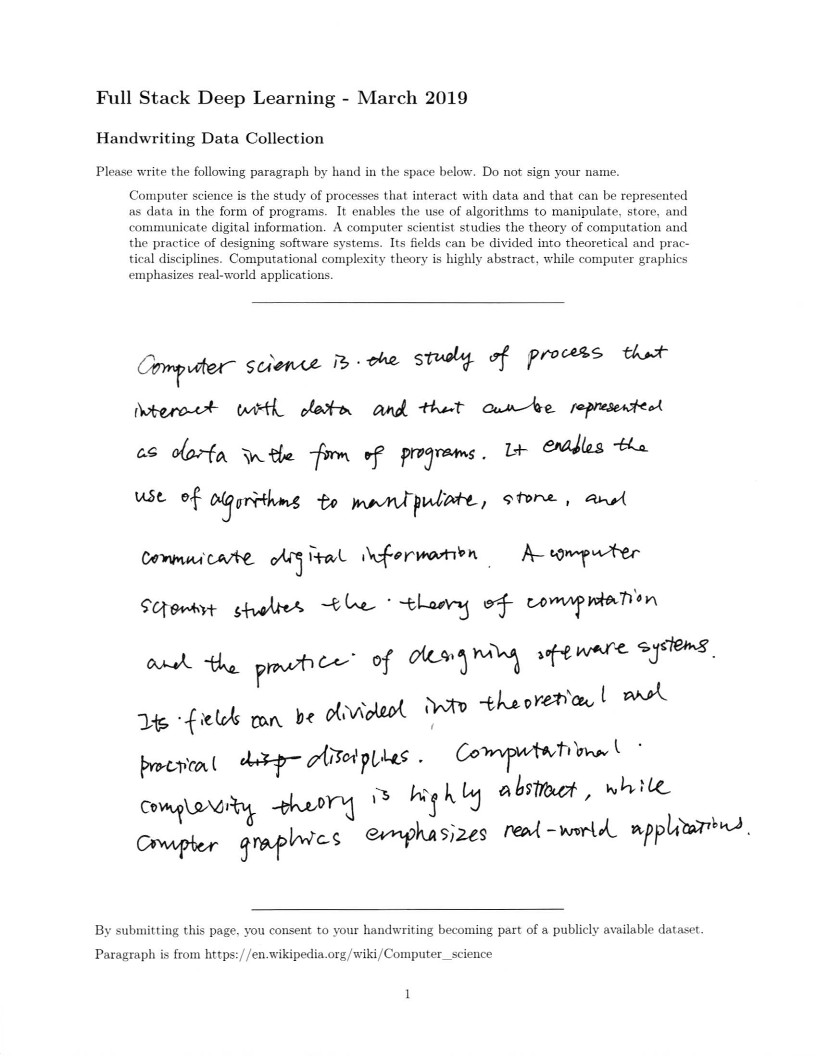 Full Stack Deep Learning - March 2019
Handwriting Data Collection
Please write the following paragraph by hand in the space below. Do not sign your name.
Computer science is the study of processes that interact with data and that can be represented
as data in the form of programs. It enables the use of algorithms to manipulate, store, and
communicate digital information. A computer scientist studies the theory of computation and
the practice of designing software systems. Its fields can be divided into theoretical and prac-
tical disciplines. Computational complexity theory is highly abstract, while computer graphics
emphasizes real-world applications.
Computer science is the study of process that
interact with data and that can be represented
as data in the form of programs. It enables the
use of algorithms to manipulate, store, and
commuicate digital information. A computer
scientist studies the theory of computation
and the practice of designing software systems.
Its fields can be divided into theoretical and
practical disp disciplines. Computational
complexity theory is highly abstract, while
Compter graphics emphasizes real-world applications.
By submitting this page, you consent to your handwriting becoming part of a publicly available dataset.
Paragraph is from https://en.wikipedia.org/wiki/Computer_science
1